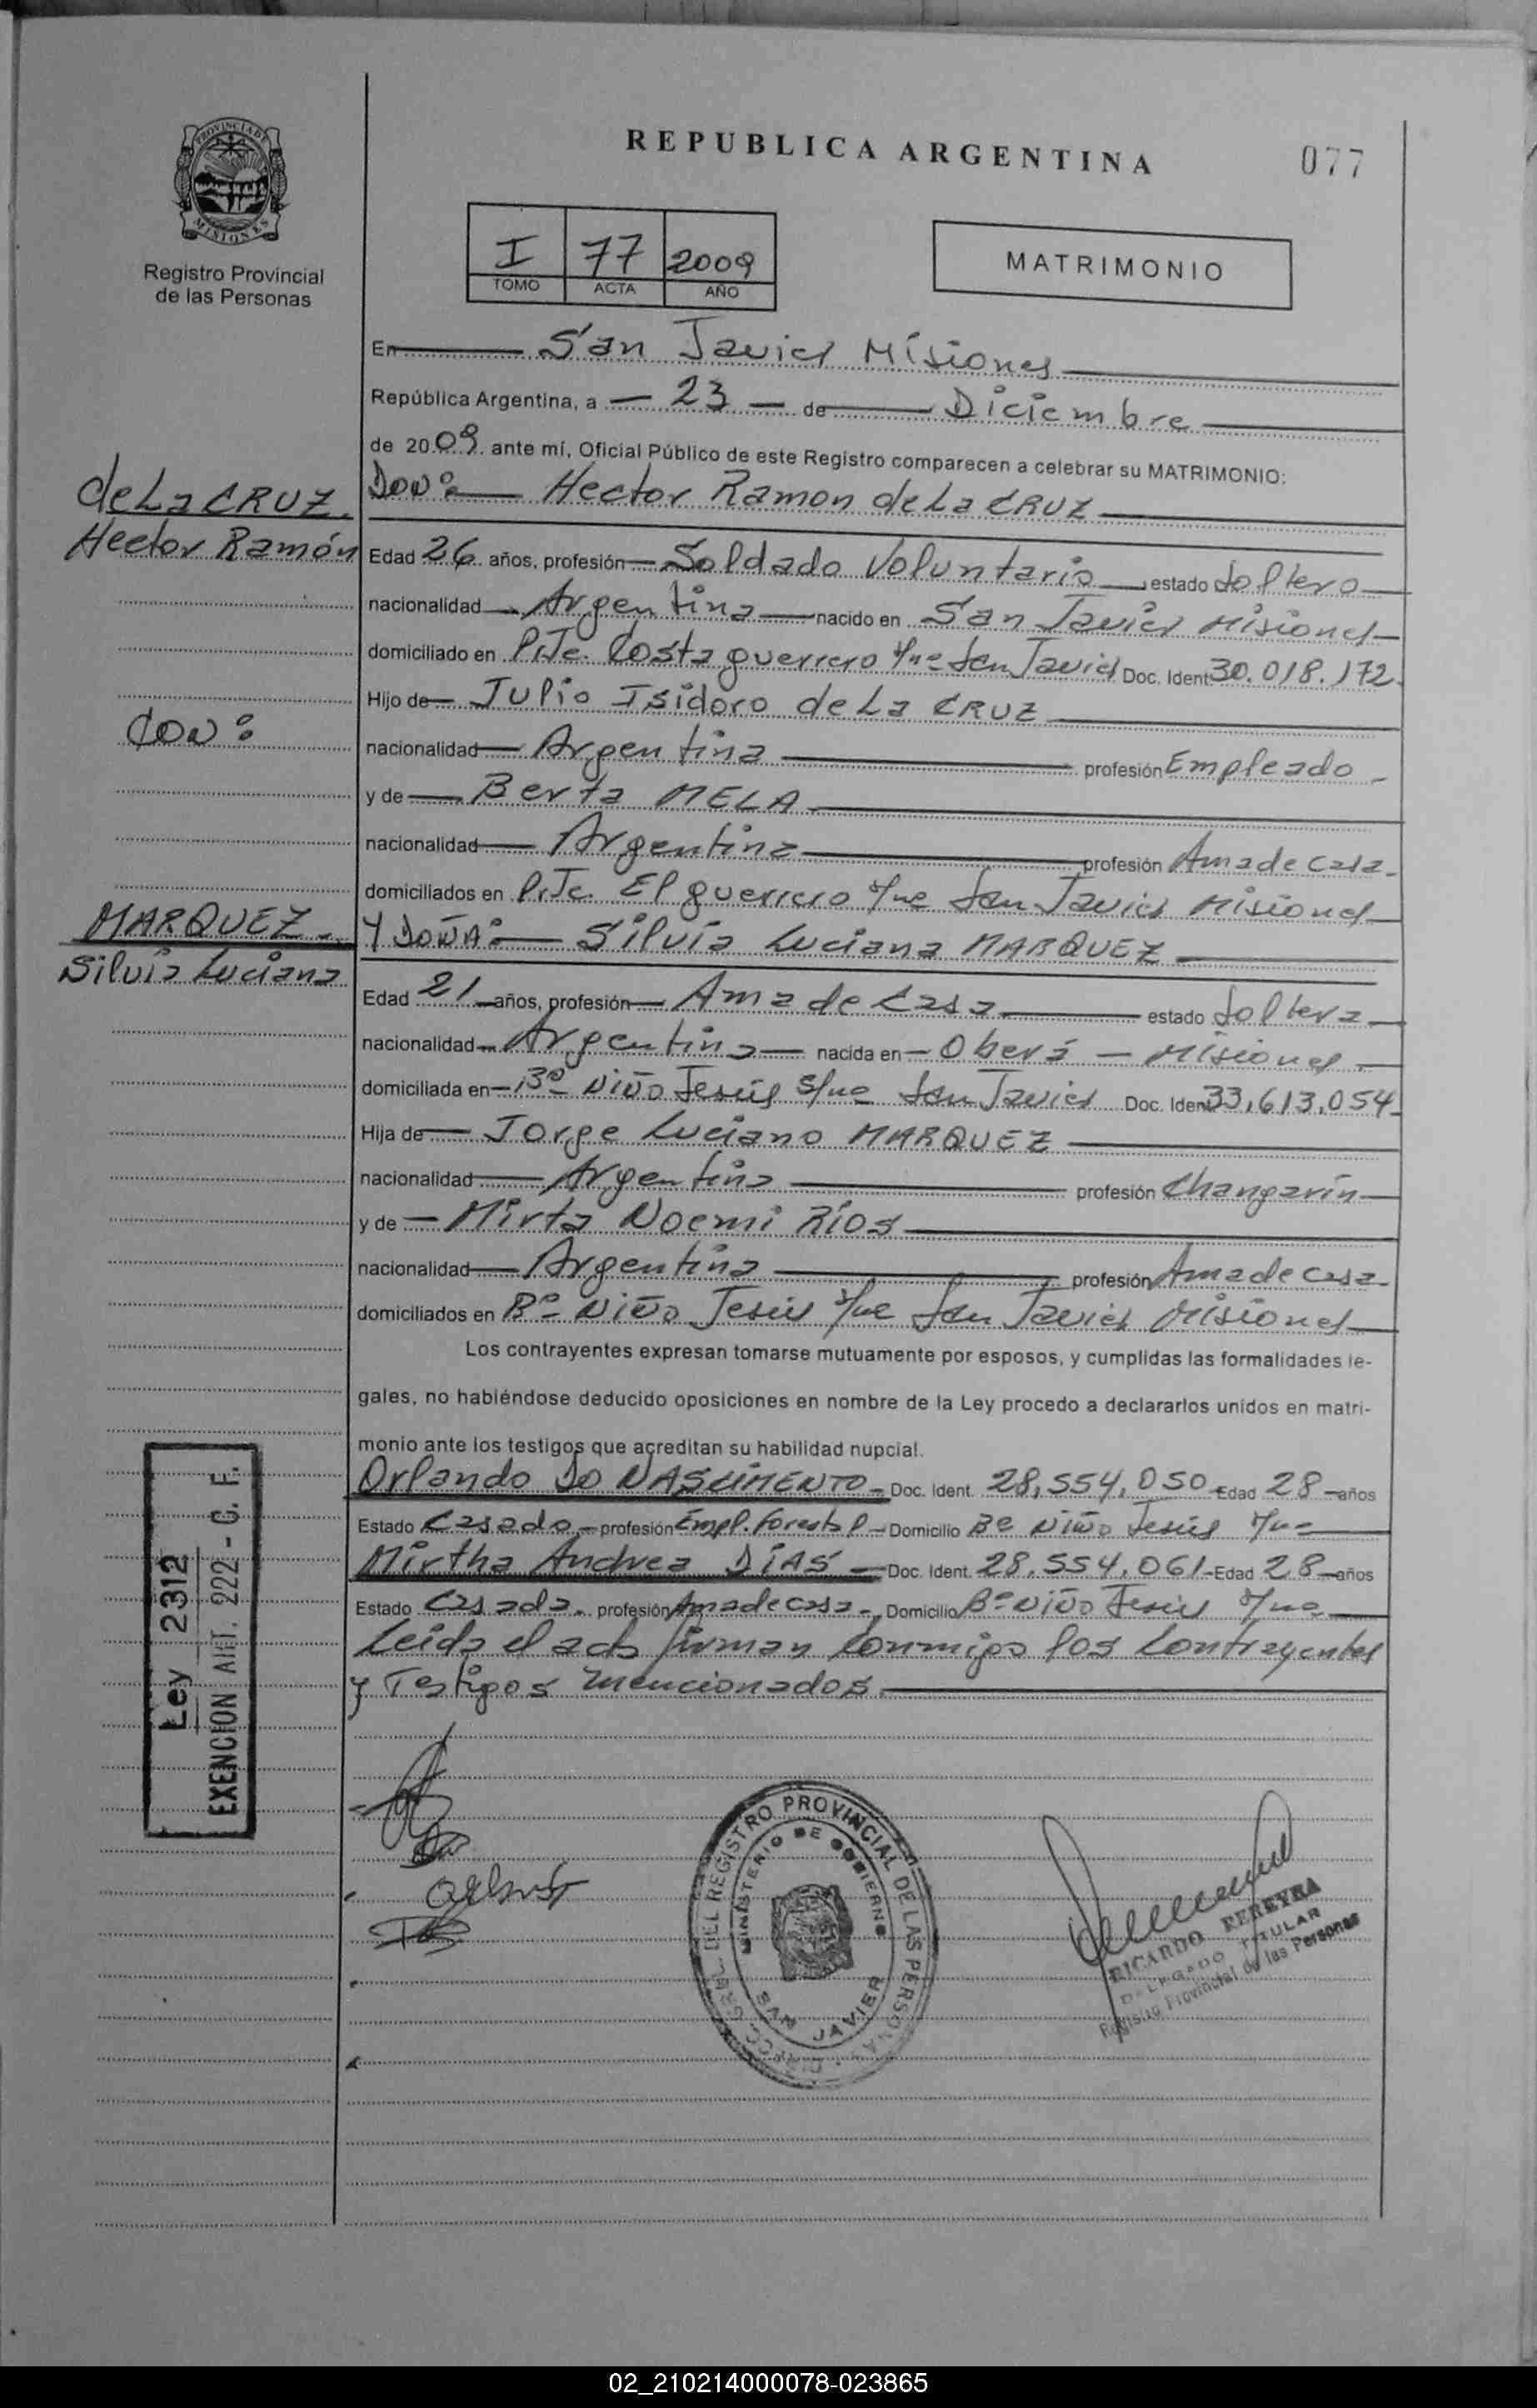 PROVINCIA DE
MISIONES
Registro Provincial
de las Personas
REPUBLICA ARGENTINA
077
I 77 2009
TOMO ACTA AÑO
MATRIMONIO
En San Javier Misiones
República Argentina, a 23 de Diciembre
de 2009 ante mí, Oficial Público de este Registro comparecen a celebrar su MATRIMONIO:
de La CRUZ
Hector Ramón
DON: Hector Ramon de La CRUZ
Edad 26 años, profesión Soldado Voluntario estado Soltero
nacionalidad Argentina nacido en San Javier Misiones
domiciliado en Pje. Costa guerrero s/nº San Javier Doc. Ident 30.018.172
Hijo de Julio Isidoro de La CRUZ
CON:
nacionalidad Argentina profesión Empleado
y de Berta MELA
nacionalidad Argentina profesión Ama de casa
domiciliados en Pje. El guerrero s/nº San Javier Misiones
MARQUEZ
Silvia Luciana
Y DOÑA: Silvia Luciana MARQUEZ
Edad 21 años, profesión Ama de Casa estado Soltera
nacionalidad Argentina nacida en Oberá - Misiones
domiciliada en Bº Niño Jesús s/nº San Javier Doc. Ident 33,613,054
Hija de Jorge Luciano MARQUEZ
nacionalidad Argentina profesión Changarín
y de Mirta Noemi RÍOS
nacionalidad Argentina profesión Ama de casa
domiciliados en Bº Niño Jesús s/nº San Javier Misiones
Los contrayentes expresan tomarse mutuamente por esposos, y cumplidas las formalidades le-
gales, no habiéndose deducido oposiciones en nombre de la Ley procedo a declararlos unidos en matri-
monio ante los testigos que acreditan su habilidad nupcial.
Orlando DO NASCIMENTO Doc. Ident. 28,554,050 Edad 28 años
Estado Casado profesión Empl. Forestal Domicilio Bº Niño Jesús s/nº
Mirtha Andrea DIAS Doc. Ident. 28.554.061 Edad 28 años
Estado Casada profesión Ama de casa Domicilio Bº Niño Jesús s/nº
Leída el acta firman Conmigo los Contrayentes
y Testigos mencionados.
Ley 2312
EXENCION ART. 222 - C. F.
DEL REGISTRO PROVINCIAL DE LAS PERSONAS
MINISTERIO DE GOBIERNO
SAN JAVIER
RICARDO PEREYRA
DELEGADO TITULAR
Registro Provincial de las Personas
02_210214000078-023865